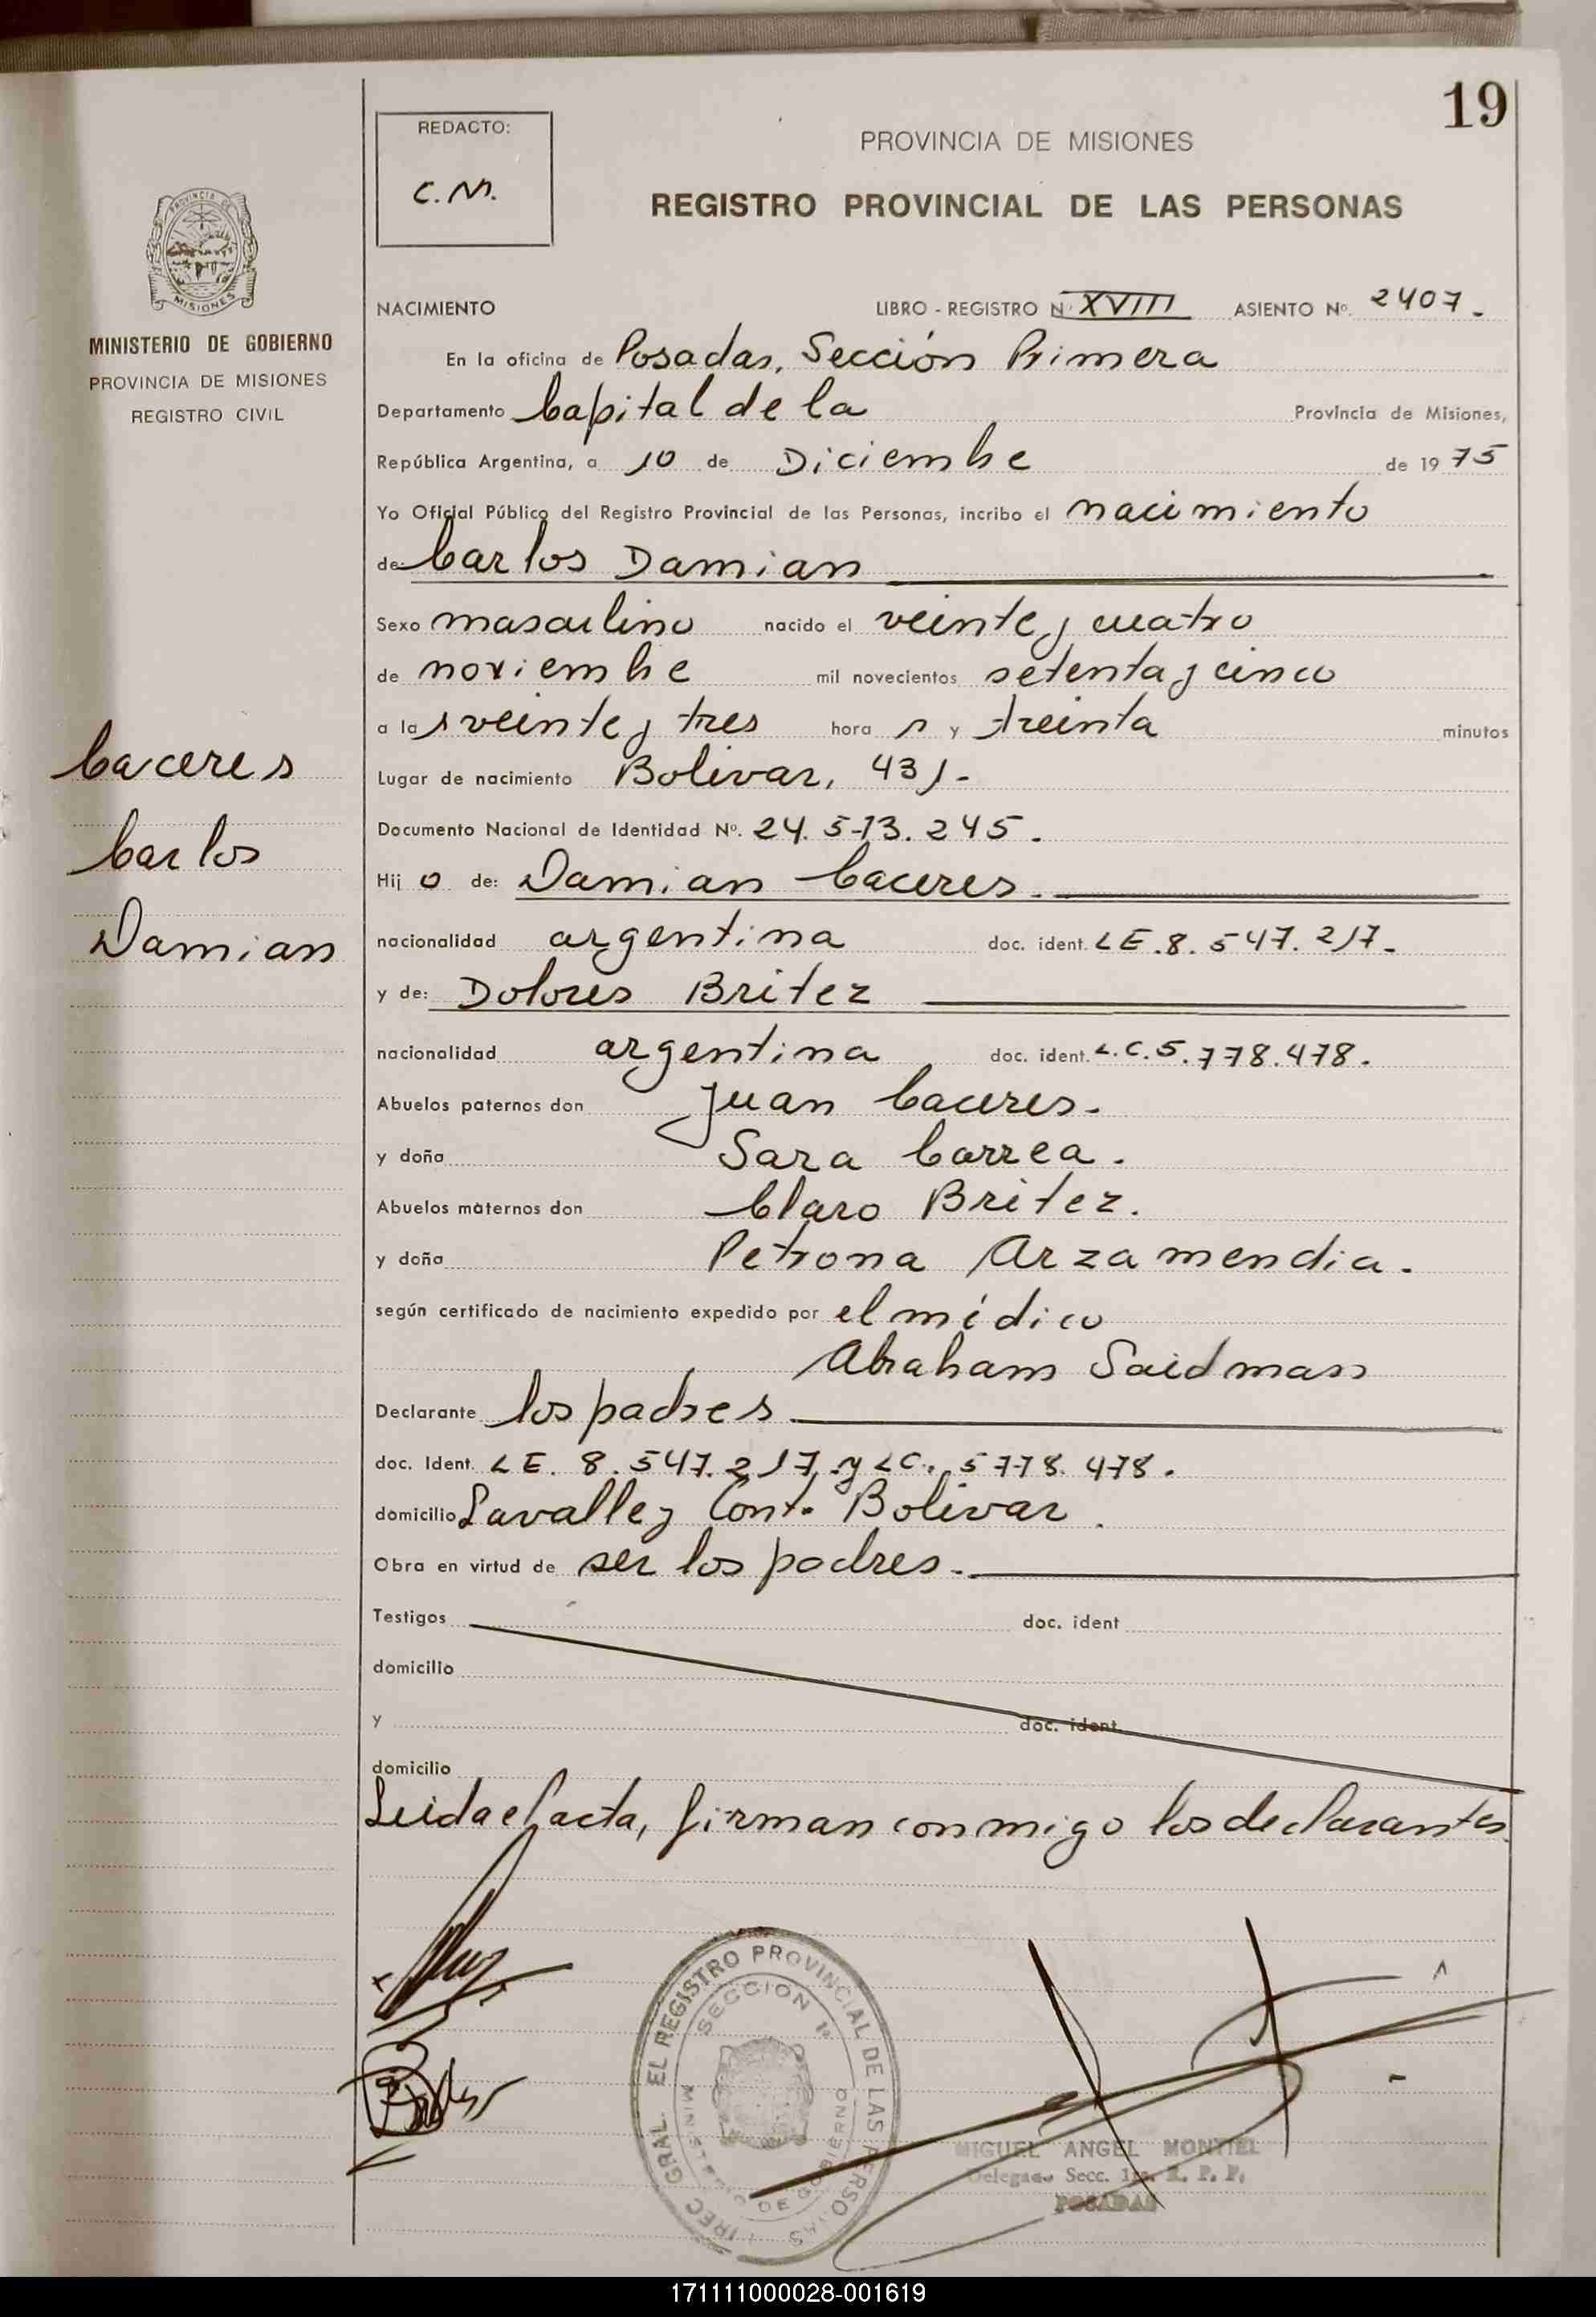 19
REDACTO:
C.M.
PROVINCIA DE MISIONES
REGISTRO PROVINCIAL DE LAS PERSONAS
MISIONES
MINISTERIO DE GOBIERNO
PROVINCIA DE MISIONES
REGISTRO CIVIL
Caceres
Carlos
Damian
NACIMIENTO LIBRO - REGISTRO Nº XVIII ASIENTO Nº. 2407.
En la oficina de Posadas, Sección Primera
Departamento Capital de la Provincia de Misiones,
República Argentina, a 10 de Diciembre de 1975
Yo Oficial Público del Registro Provincial de las Personas, incribo el nacimiento
de: Carlos Damian
Sexo masculino nacido el veinte y cuatro
de noviembre mil novecientos setenta y cinco
a las veinte y tres horas y treinta minutos
Lugar de nacimiento Bolivar, 431.-
Documento Nacional de Identidad Nº. 24.513.245.
Hijo de: Damian Caceres.
nacionalidad argentina doc. ident. LE.8.547.217.-
y de: Dolores Britez
nacionalidad argentina doc. ident. L.C.5.778.478.
Abuelos paternos don Juan Caceres.
y doña Sara Correa.
Abuelos maternos don Claro Britez.
y doña Petrona Arzamendia.
según certificado de nacimiento expedido por el médico
Abraham Saidman
Declarante los padres
doc. Ident. LE. 8.547.217, y LC. 5778.478.
domicilio Lavalle y Cont. Bolivar.
Obra en virtud de ser los padres.-
Testigos doc. ident
domicilio
y doc. ident
domicilio
Leida el acta, firman conmigo los declarantes.
DIREC. GRAL. EL REGISTRO PROVINCIAL DE LAS PERSONAS
SECCION 1ª
MINISTERIO DE GOBIERNO
MIGUEL ANGEL MONTIEL
Delegado Secc. 1ra. R. P. P.
POSADAS
171111000028-001619